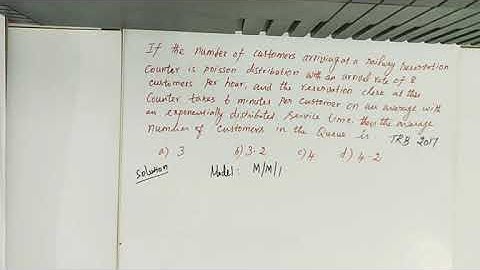 If the number of customers arriving at a railway reservation
Counter is poisson distribution with an arrival rate of 8
customers per hour, and the reservation clerk at the
Counter takes 6 minutes per customer on an average with
an exponentially distributed service time, then the average
number of customers in the Queue is TRB 2017
a) 3 b) 3.2 c) 4 d) 4.2
Solution Model : M/M/1